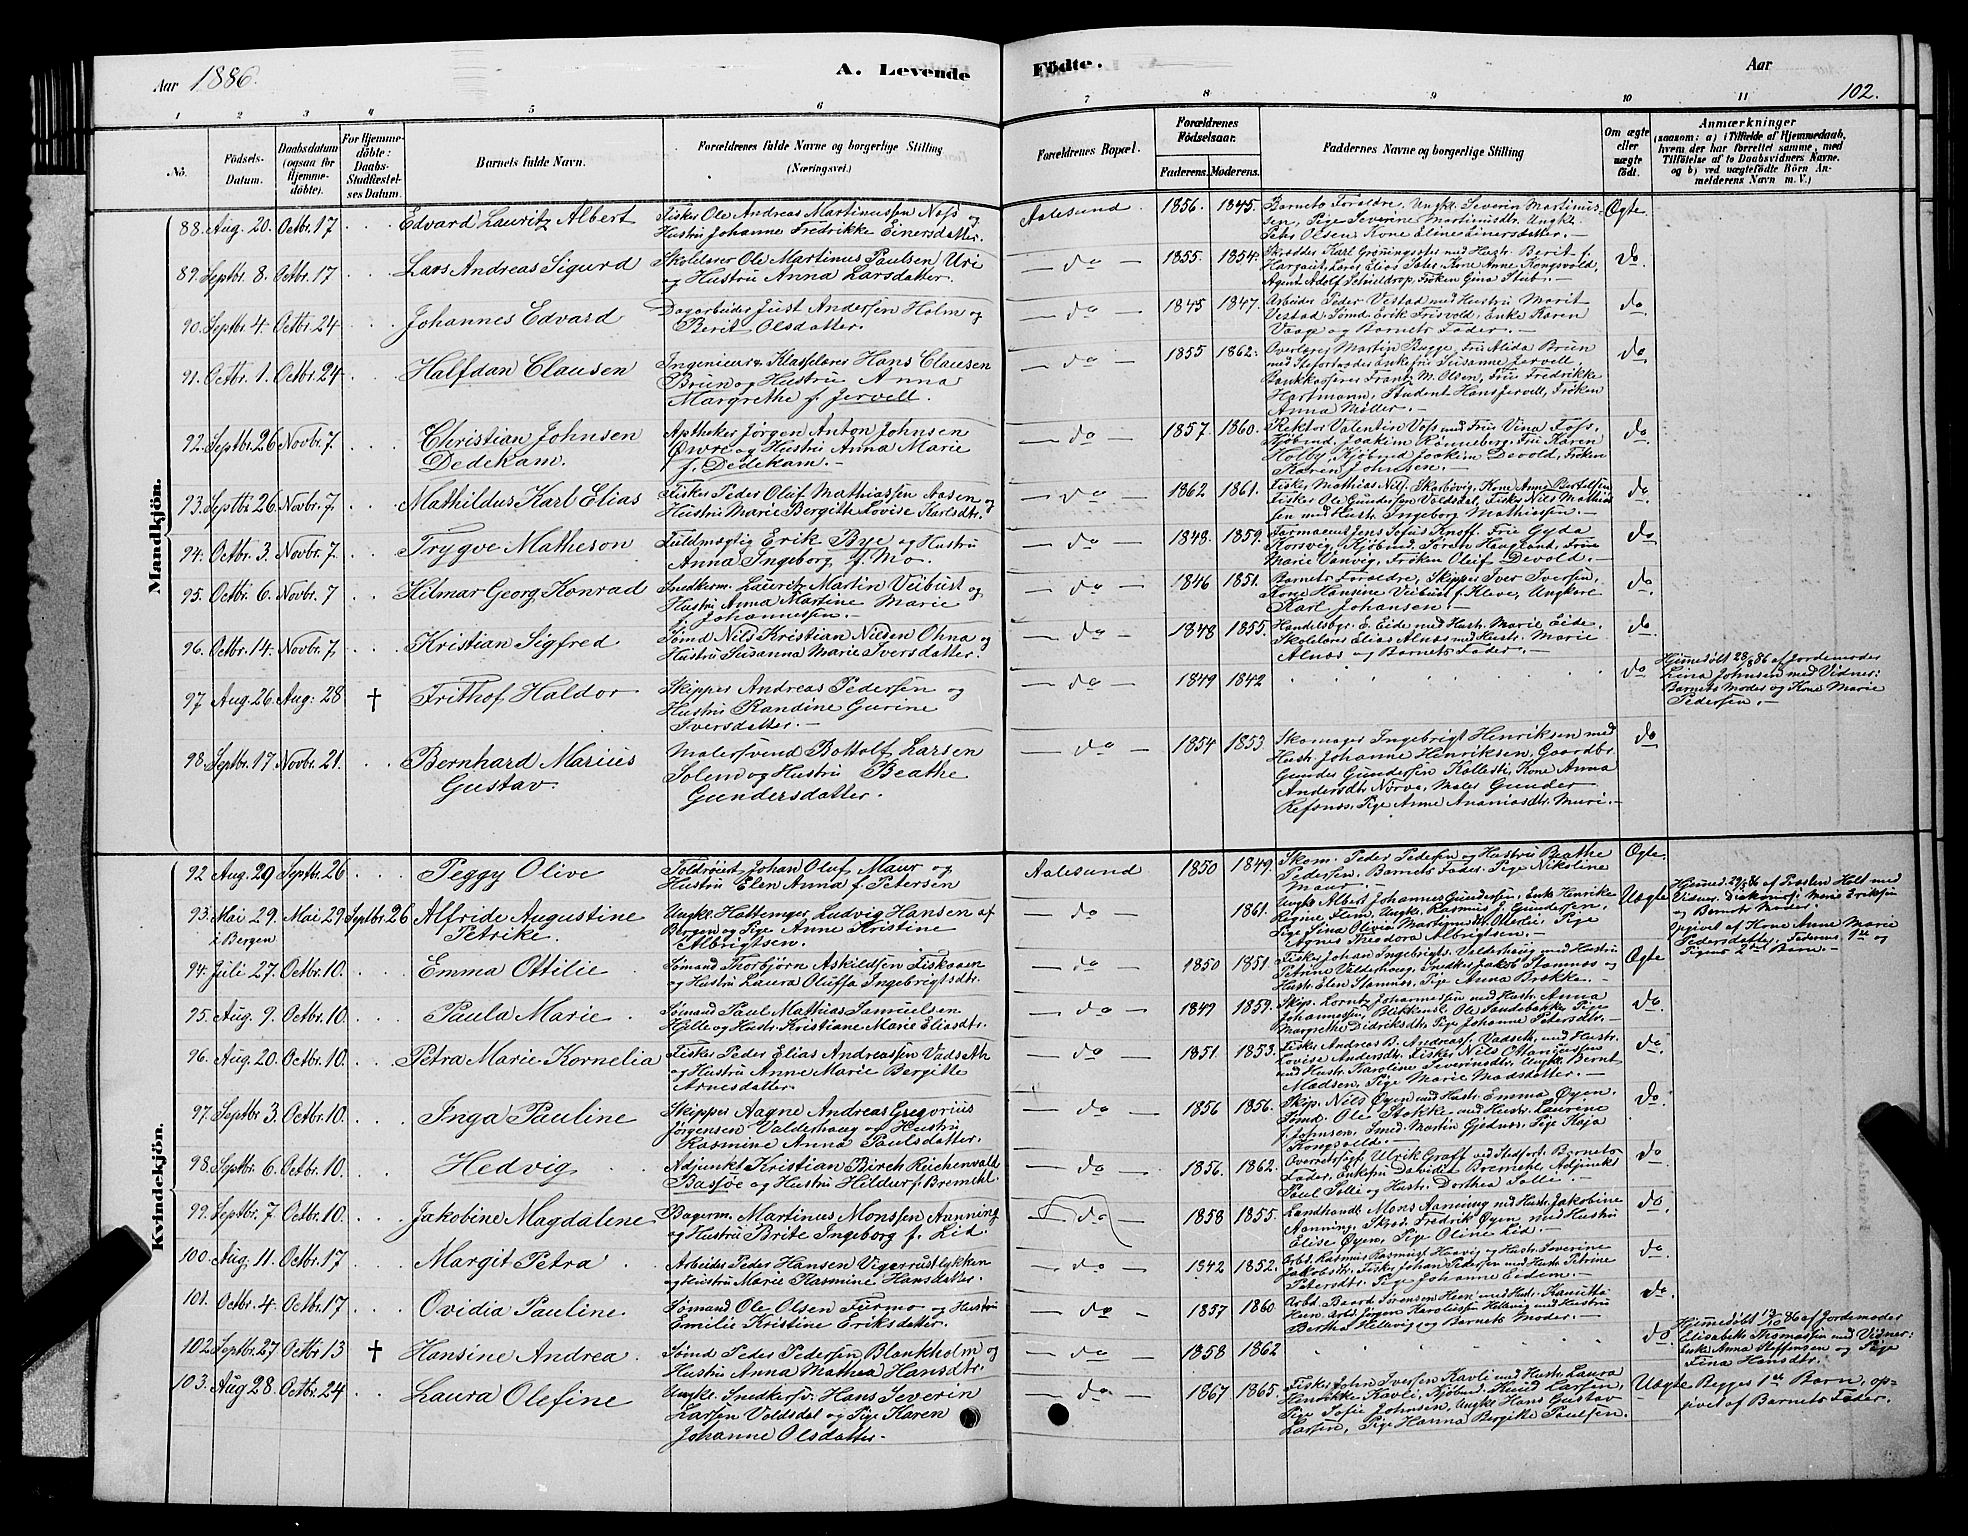 Aar 1886.
A. Levende
Födte.
Aar
102.
1 2 3 4 5 6 7 8 9 10 11
No.
Födsels-
Datum.
Daabsdatum
(ogsaa for
Hjemme-
döbte).
For Hjemme-
döbte:
Daabs-
Stadfæstel-
ses Datum.
Barnets fulde Navn.
Forældrenes fulde Navne og borgerlige Stilling
(Næringsvei.)
Forældrenes Bopæl.
Forældrenes
Födselsaar.
Faderens. Moderens.
Faddernes Navne og borgerlige Stilling
Om ægte
eller
uægte
födt.
Anmærkninger
(saasom: a) i Tilfælde af Hjemmedaab,
hvem der har forrettet samme, med
Tilföielse af to Daabsvidners Navne.
og b) ved uægtefödte Börn An-
melderens Navn m. V.)
Mandkjön.
88. Aug. 20. Octbr. 17 Edvard Lauritz Albert
Fisker Ole Andreas Martinussen Næss og
Hustru Johanne Fredrikke Einersdatter.
Aalesund 1856. 1845.
Barnets Forældre, Ungk. Severin Martinus-
sen, Pige Severine Martinusdtr. Ungk.
Peter Olsen, Kone Eline Einersdatter.
Ægte
89. Septbr. 8. Octbr. 17 Lars Andreas Sigurd
Skolelærer Ole Martinus Paulsen Uri
og Hustru Anna Larsdatter.
do 1855. 1854.
Skrædder Karl Gröningsæter med Hustr. Berit f.
Agent Adolf Schieldrop, Fröken Gina Stub.
do
90. Septbr. 4. Octbr. 24 Johannes Edvard
Dagarbeider Just Andersen Holm og
Berit Olsdatter.
do 1845 1847.
Arbeider Peder Vestad med Hustru Marit
Vestad, Sömd. Erik Frisvold, Enke Karen
Vaage og Barnets Fader.
do
91. Octbr. 1. Octbr. 24 Halfdan Clausen
Ingenieur, Klasselærer Hans Clausen
Brun og Hustru Anna
Margrethe f. Jervell.
do 1855 1862.
Overlærer Martin Bugge, Frue Alida Brun
med Stedfortræder Enkefru Susanne Jervell,
Bankkasserer Frantz M. Olsen, Frue Fredrikke
Hartmann, Student Hans Jervell, Fröken
Anna Møller.
do
92. Septbr. 26 Novbr. 7. Christian Johnsen
Dedekam.
Apotheker Jörgen Anton Johnsen
Øwre og Hustru Anna Marie
f. Dedekam.
do 1857. 1860.
Rektor Valentin Voss med Frue Vina Foss,
Kjöbmd. Joakim Rønneberg, Frue Karen
Holby, Kjöbmd Joakim Devold, Fröken
Karen Johnsen.
do
93. Septbr 26 Novbr. 7. Mathildus Karl Elias
Fisker Peder Oluf Mathiassen Aasen og
Hustru Marie Bergitte Lovise Karlsdtr.
do 1862 1861.
Fisker Mathias Nils. Skarbövig, Kone Anne Bertelsen
Fisker Ole Gundersen Voldsdal, Fisker Nils Mathias
sen med Hustr. Ingeborg Mathiassen.
do
94. Octbr. 3. Novbr. 7. Trygve Matheson
Fuldmægtig Erik Bye og Hustru
Anna Ingeborg f. Mo.
do 1848. 1859.
Farmaceut Jens Sofus Knoff. Frue Gyda
Korsvig, Kjöbmd. Søren Haagland, Frue
Marie Vanvig, Fröken Oleif Devold.
do
95. Octbr. 6. Novbr. 7 Hilmar Georg Konrad
Snedkerm. Lauritz Martin Veibust og
Hustru Anna Martine Marie
f. Johannesen.
do 1846 1851.
Barnets Forældre, Skipper Iver Iversen,
Kone Hansine Veibust f. Kleve, Ungkarl
Karl Johansen.
do
96. Octbr. 14. Novbr. 7 Kristian Sigfred
Sömd Nils Kristian Nilsen Ohna og
Hustru Susanna Marie Iversdatter.
do 1848 1855.
Handelsbgr. E. Eide med Hustr. Marie Eide,
Skolelærer Elias Alnæs med Hustr. Marie
Alnæs og Barnets Fader.
do
97 Aug. 26 Aug. 28 † Frithof Haldor
Skipper Andreas Pedersen og
Hustru Randine Gurine
Iversdatter.
do 1849 1842
do
Hjemmedöbt 28/8 86 af Jordemoder
Lina Johnsen med Vidner:
Barnets Moder og Kone Marie
Pedersen.
98. Septbr. 17 Novbr. 21. Bernhard Marius
Gustav.
Malersvend Bottolf Larsen
Solem og Hustru Beathe
Gundersdatter.
do 1854 1853
Skomager Ingebrigt Henriksen med
Hustr. Johanne Henriksen, Gaardbr.
Gunder Gundersen Kollesti, Kone Anna
Andersdtr. Nörve, Maler Gunder
Refsnæs, Pige Anne Ananiasdtr. Muri.
do
Kvindekjön.
92 Aug. 29 Septbr. 26 Peggy Olive
Toldröiert Johan Oluf Maur og
Hustru Elen Anna f. Petersen
Aalesund 1850 1849.
Skom. Peder Pedersen og Hustru Beathe
Pedersen. Barnets Fader, Pige Nikoline
Maur.
Ægte.
93. Mai 29. Mai 29 Septbr. 26 Alfride Augustine
i Bergen Petrike.
Ungk. Hattemager Ludvig Hansen af
Bergen og Pige Anne Kristine
Albrigtsen.
do 1861.
Ungk. Albert Johannes Gundersen, Enke Henrike
Regine Flem, Ungk. Rasmus J. Gundersen,
Pige Lina Olivia Martinusdtr. Otterlei, Pige
Agnes Theodora Albrigtsen.
Uægte
Hjemmed. 29/5 86 af Frøken Holt med
Vidner: Diakonisse Marie Eriksen
og Barnets Moder.
Opgivet af Kone Anne Marie
Pedersdatter, Faderens 1ste og
Pigens 2det Barn.
94. Juli 27. Octbr. 10. Emma Ottilie
Sømand Thorbjørn Askildsen Fiskaaen
og Hustru Laura Oluffa Ingebrigtsdtr.
do 1850 1851.
Fisker Johan Ingebrigts. Valderhaug med Hustru
Petrine Valderhaug, Snedker Jakob Stamnæs og
Hustr. Elen Stamnæs, Pige Anna Brække.
Ægte
95. Aug. 9. Octbr. 10. Paula Marie
Sømand Paul Mathias Samuelsen
Hjelle og Hustr. Kristiane Marie Eliasdtr.
do 1849 1859.
Skip. Lorntz Johannessen med Hustr. Anna
Johannessen, Blikkensl. Ole Sandebakke, Pige
Margrethe Didriksdtr, Pige Johanne Petersdtr.
do
96. Aug. 20. Octbr. 10. Petra Marie Kornelia
Fisker Peder Elias Andreassen Vadsæth
og Hustru Anne Marie Bergitte
Arnesdatter.
do 1851. 1853.
Fisker Andreas B. Andreass. Vadseth, med Hustr.
Lovise Andersdtr. Fisker Nils Ottomussen
med Hustr. Karoline Severinsdtr, Ungk. Bernt
Madsen, Pige Marie Madsdatter.
do.
97. Septbr 3. Octbr. 10. Inga Pauline
Skipper Aagne Andreas Gregorius
Jörgensen Valderhaug og Hustru
Rasmine Anna Paulsdatter.
do 1856 1856.
Skip. Nils Øyen med Hustr. Emma Øyen,
Sömd. Ole Stokke med Hustr. Laurine
f. Johnsen, Smed Martin Gjednæs, Pige Kaja
Kongsvold.
do
98. Septbr. 6. Octbr. 10. Hedvig
Adjunkt Kristian Birch Reichenwald
Bassøe og Hustru Hildur f. Bremehl.
do 1856. 1862.
Overretssagf. Ulrik Graff ved Stedfort. Barnets
Fader, Enkefru Davidia Bremehl, Adjunkt
Paul Solli og Hustr. Dorthea Solli.
do.
99. Septbr. 7. Octbr. 10. Jakobine Magdalene
Bagerm. Martinus Monssen Aanning
og Hustru Brite Ingeborg f. Lid.
do 1858 1855.
Landhandl. Mons Aanning med Hustr. Jakobine
Aanning, Skræd. Fredrik Øyen med Hustru
Elise Øyen, Pige Oline Lid.
do
100. Aug. 11. Octbr. 17 Margit Petra
Arbeider Peder Hansen Vigerustlykken
og Hustru Marie Rasmine Hansdatter.
do 1842 1852.
Arbd. Rasmus Rasmuss. Haavig og Hustr. Severine
Jakobsdtr. Fisker Johan Pedersen med Hustr. Petrine
Petersdtr. Pige Johanne Eidem.
do
101. Octbr. 4. Octbr. 17 Ovidia Pauline
Sømand Ole Olsen Furmo og Hustru
Emilie Kristine Eriksdatter.
do 1857 1860
Arbd. Baard Sørensen Heen med Hustr. Kanutta
Heen, Arbd. Jørgen Karoliussen Hellevig med Hustru
Bertha Hellevig og Barnets Moder.
do.
102 Septbr. 27 Octbr. 13 † Hansine Andrea
Sömd Peder Pedersen Blankholm og
Hustru Anna Mathea Hansdtr.
do 1858 1862
do
Hjemmedöbt 13/10 86 af Jordemoder
Elisabeth Thomassen med Vidner:
Enke Anna Steffensen og Pige
Fina Hansdtr.
103. Aug 28. Octbr. 24 Laura Olefine
Ungk. Snedkersv. Hans Severin
Larsen Voldsdal og Pige Karen
Johanne Olsdatter.
do 1867 1865.
Fisker John Iversen Kavli med Hustr. Laura
Henrikke Kavli, Kjöbmd. Knud Larsen,
Pige Sofie Johnsen, Ungk. Hans Gustav
Larsen, Pige Hanna Bergitte Paulsen.
Uægte
Begges 1ste Barn, op-
givet af Barnets Fader.